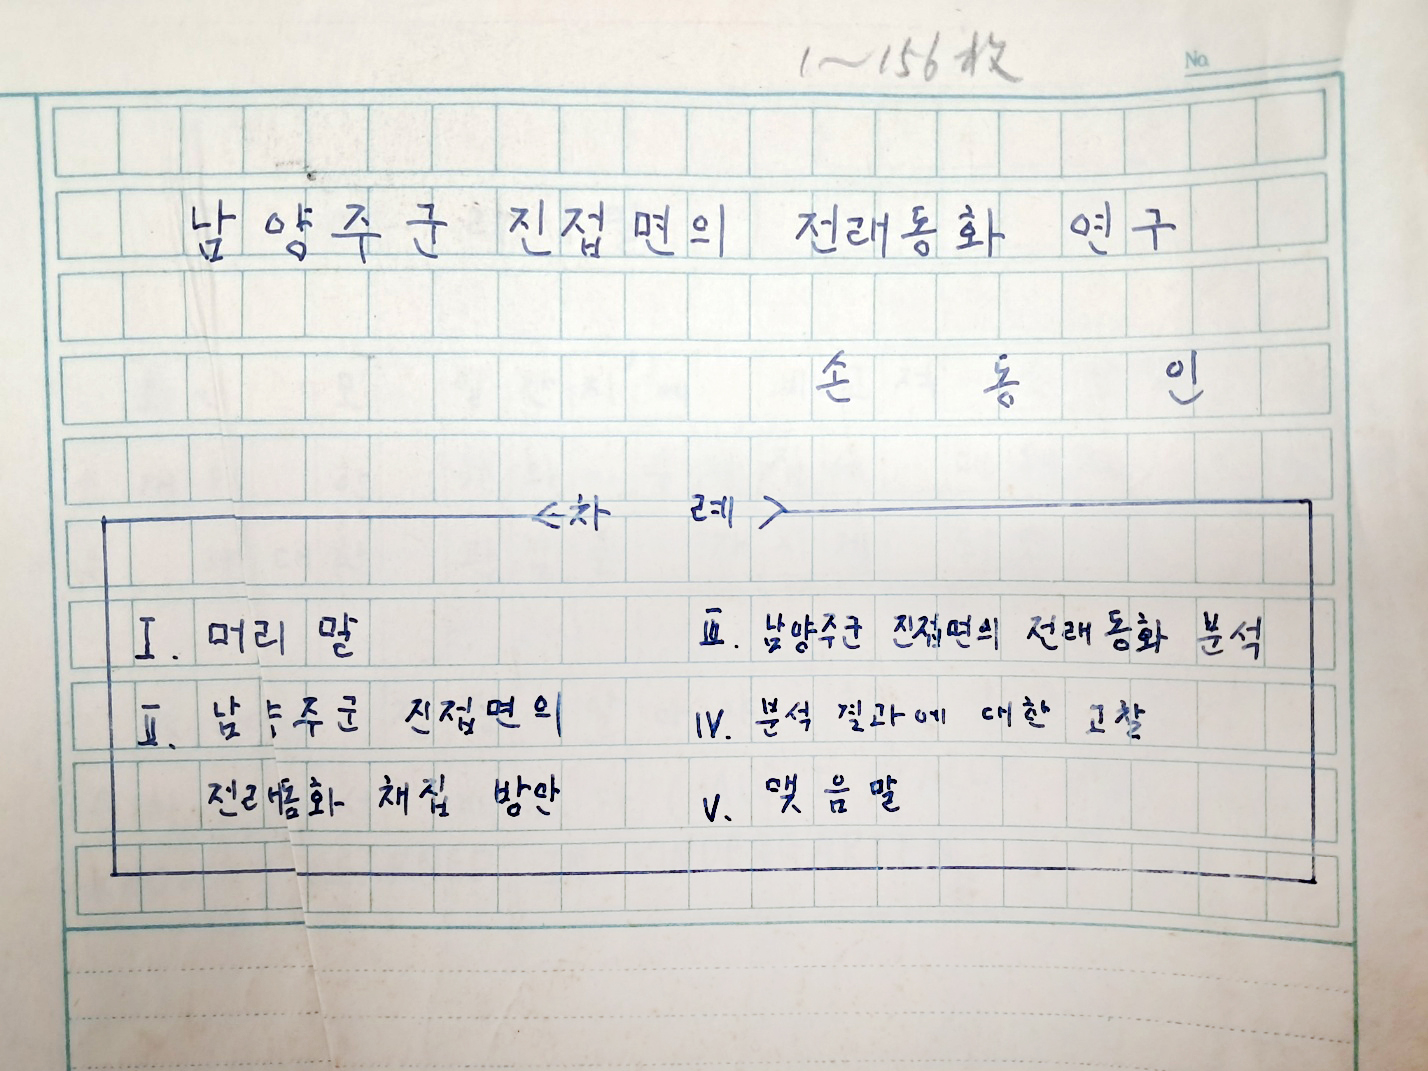 1~156枚
No.
남양주군 진접면의 전래동화 연구
손 동 인
<차 례>
Ⅰ. 머리말
Ⅱ. 남양주군 진접면의
전래동화 채집 방안
Ⅲ. 남양주군 진접면의 전래동화 분석
Ⅳ. 분석 결과에 대한 고찰
Ⅴ. 맺음말